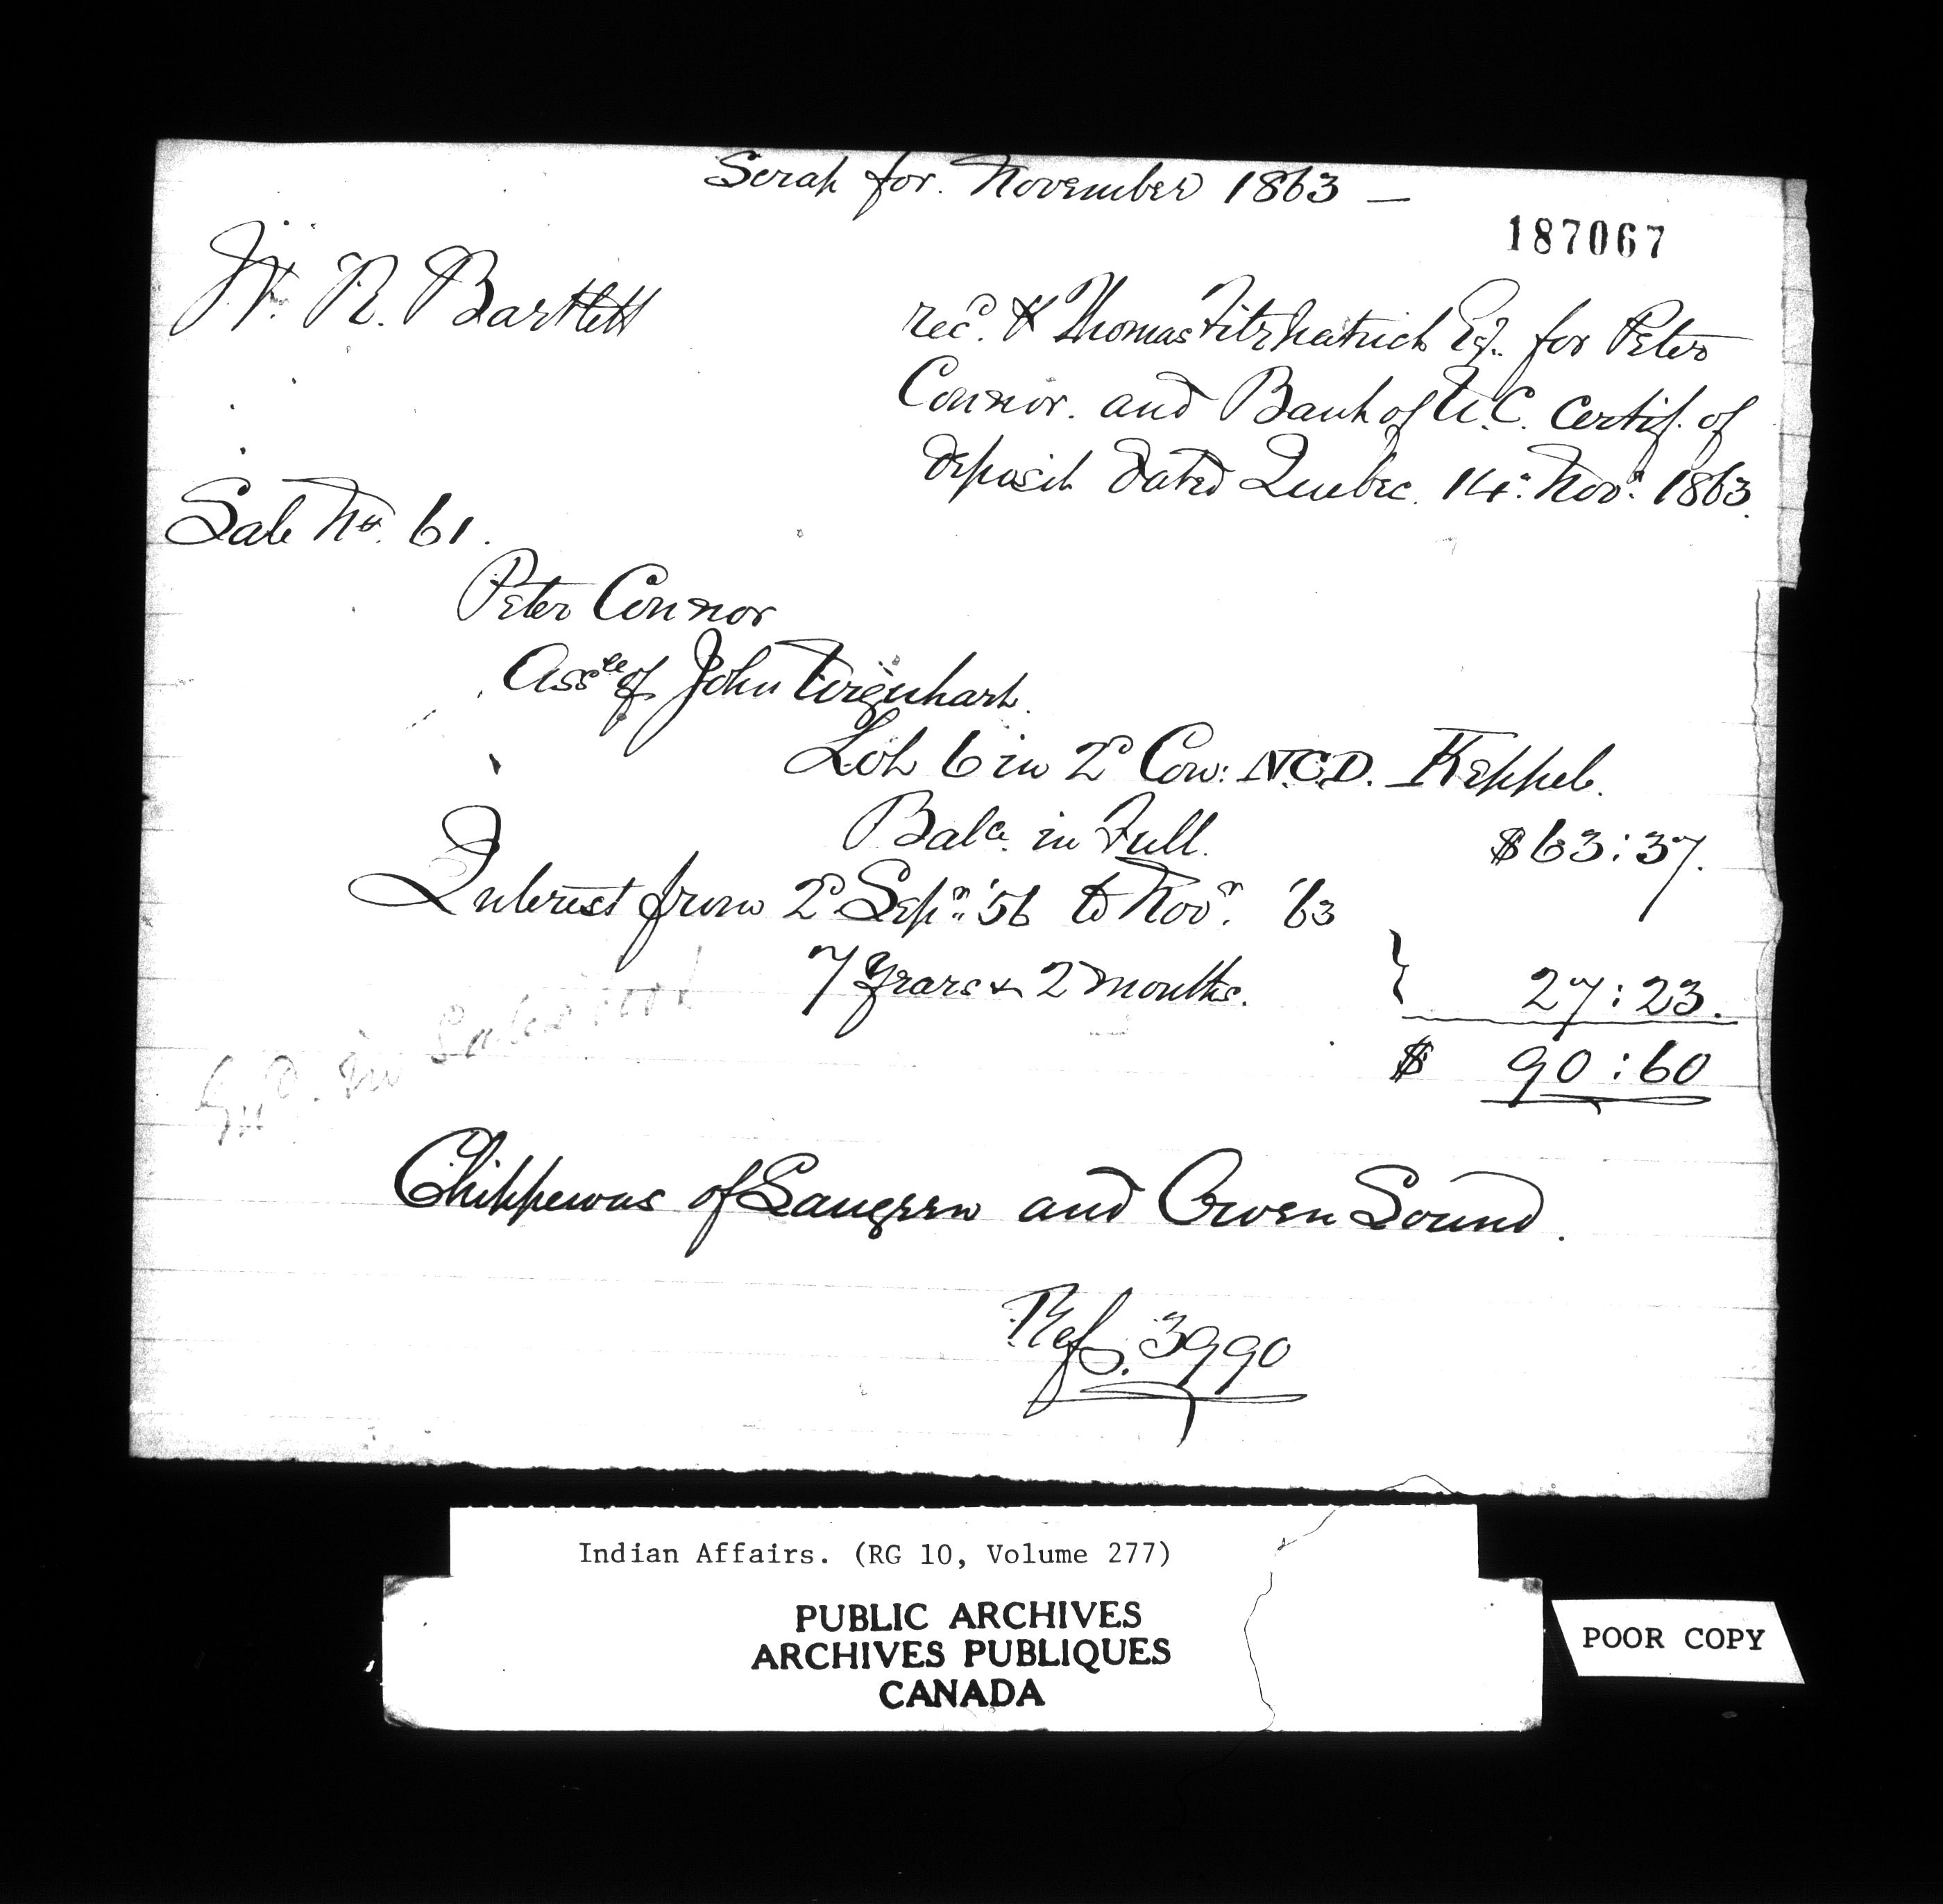 Scrap for. November 1863 —
187067
W. R. Bartlett
recd. Thomas Fitzpatrick Esq. for Peter
Connor. and Bank of U.C. Certif. of
deposit dated Quebec. 14th Novr. 1863.
Sale No. 61.
Peter Connor
Assee of John Urquhart.
Lot 6 in 2d Con: N.C.D. Keppel.
Balce. in Full. $63:37.
Interest from 2d Sepr. '56 to Novr. '63
7 Years & 2 months. } 27:23.
$ 90:60
Entd. in Sales
Chippewas of Saugeen and Owen Sound.
Ref. 3990
Indian Affairs. (RG 10, Volume 277)
PUBLIC ARCHIVES
ARCHIVES PUBLIQUES
CANADA
POOR COPY